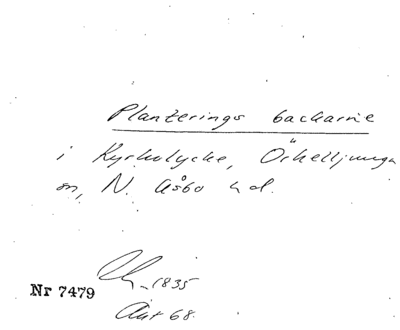 Planterings backarne
i Kyrkolycke, Örkelljunga
sn, N. Åsbo hd.
1835
Nr 7479
Akt 68.